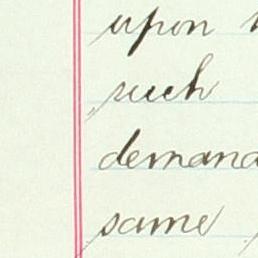 upon
such
demand
same